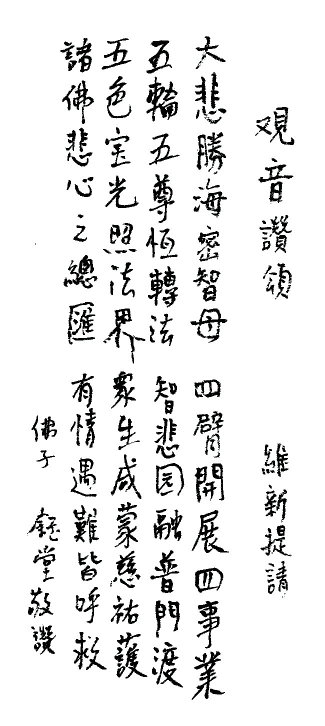 观音讚頌
維新提請
大悲勝海密智母 四臂開展四事業
五輪五尊恒轉法 智悲圆融普門渡
五色宝光照法界 眾生咸蒙慈祐護
諸佛悲心之總匯 有情遇難皆呼救
佛子 鈺堂敬讚